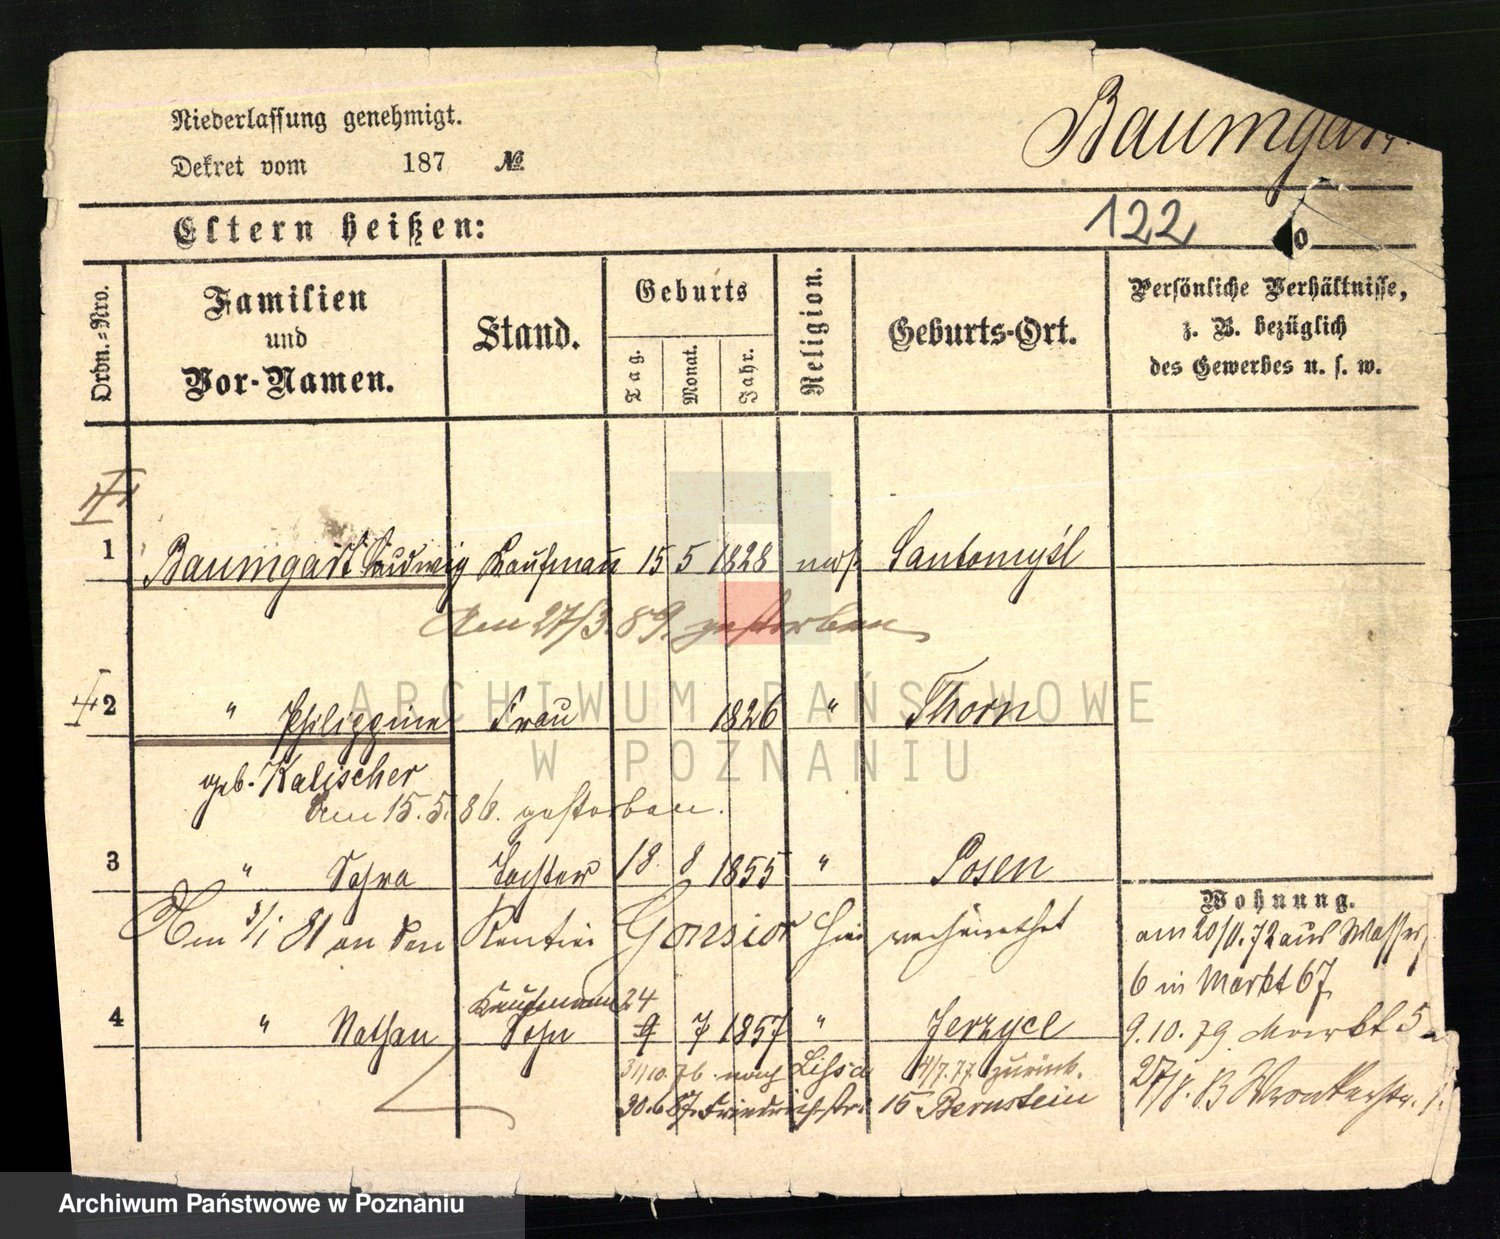 Niederlassung genehmigt.
Baumgart
Dekret vom 187 №
Eltern heißen:
122
Ordn.-Nro.
Familien und Vor-Namen.
Stand.
Geburts
Tag.
Monat.
Jahr.
Religion.
Geburts-Ort.
Persönliche Verhältnisse,
z. B. bezüglich
des Gewerbes u. s. w.
1 Baumgart Ludwig Kaufmann 15 5 1828 mos. Santomyśl
Am 27/3.89. gestorben
2 " Philippine Frau 1826 " Thorn
geb. Kalischer
am 15.5.86. gestorben.
3 " Tochter 18 8 1855 " Posen
Am 3/1 81 an den Rentier Gonsior hier verheirathet
Kaufmann 24
4 " Nathan Sohn 9 7 1857 " Jerzyce
31/10.76. nach 4/7.77. zurück.
30.6.87. Friedrichstr. 15 Bernstein
Wohnung.
am 20/11.72 aus Wasserstr.
6 in Markt 67
9.10.79 Markt 5
27/8.83 Wronkerstr.
ARCHIWUM PAŃSTWOWE
W POZNANIU
Archiwum Państwowe w Poznaniu